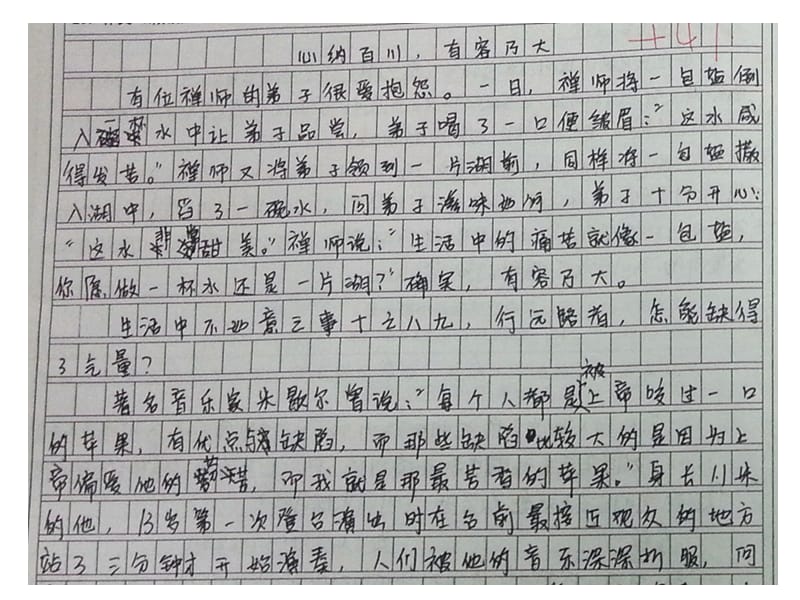 +41
心纳百川，有容乃大
有位禅师的弟子很爱抱怨。一日，禅师将一包盐倒
入一杯水中让弟子品尝，弟子喝了一口便皱眉：“这水咸
得发苦。”禅师又将弟子领到一片湖前，同样将一包盐撒
入湖中，舀了一碗水，问弟子滋味如何，弟子十分开心：
“这水非常甜美。”禅师说：“生活中的痛苦就像一包盐，
你愿做一杯水还是一片湖？”确实，有容乃大。
生活中不如意之事十之八九，行远路者，怎能缺得
了气量？
著名音乐家米歇尔曾说：“每个人都是被上帝咬过一口
的苹果，有优点与缺陷，而那些缺陷比较大的是因为上
帝偏爱他的芬芳，而我就是那最苦者的苹果。”身长 米
的他，13岁第一次登台演出时在台前最接近观众的地方
站了三分钟才开始演奏，人们被他的音乐深深折服，问